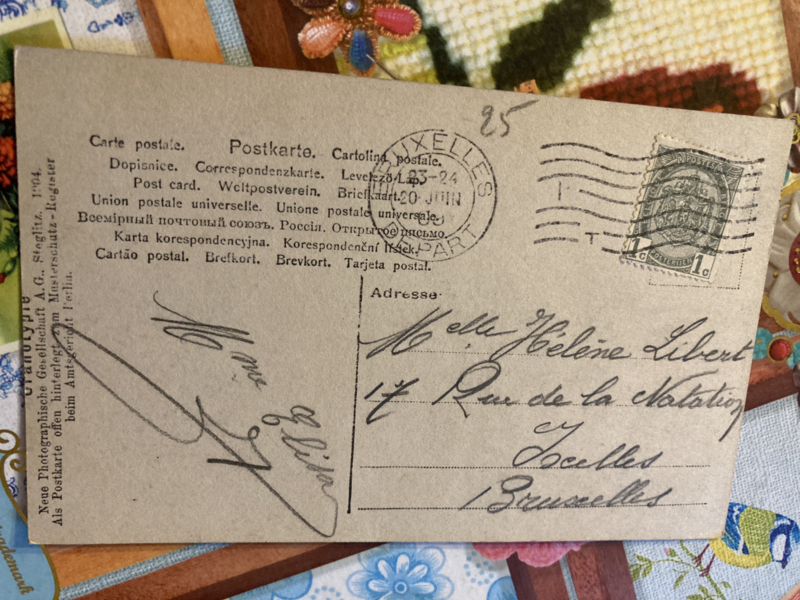 25
Carte postale. Postkarte. Cartolina postale.
Dopisnice. Correspondenzkarte. Levelező-Lap.
Post card. Weltpostverein. Briefkaart.
Union postale universelle. Unione postale universale.
Всемірный почтовый союзъ. Россія. Открытое письмо.
Karta korespondencyjna. Korespondenční lístek.
Cartão postal. Brefkort. Brevkort. Tarjeta postal.
BRUXELLES
23-24
20 JUIN
DÉPART
1c 1c
Adresse
Melle Hélène Libert
17 Rue de la Natation
Ixelles
Bruxelles
Mme Elisa
Neue Photographische Gesellschaft A.G., Steglitz. 1904.
Als Postkarte offen hinterlegt zum Musterschutz-Register
beim Amtsgericht Berlin.
trademark